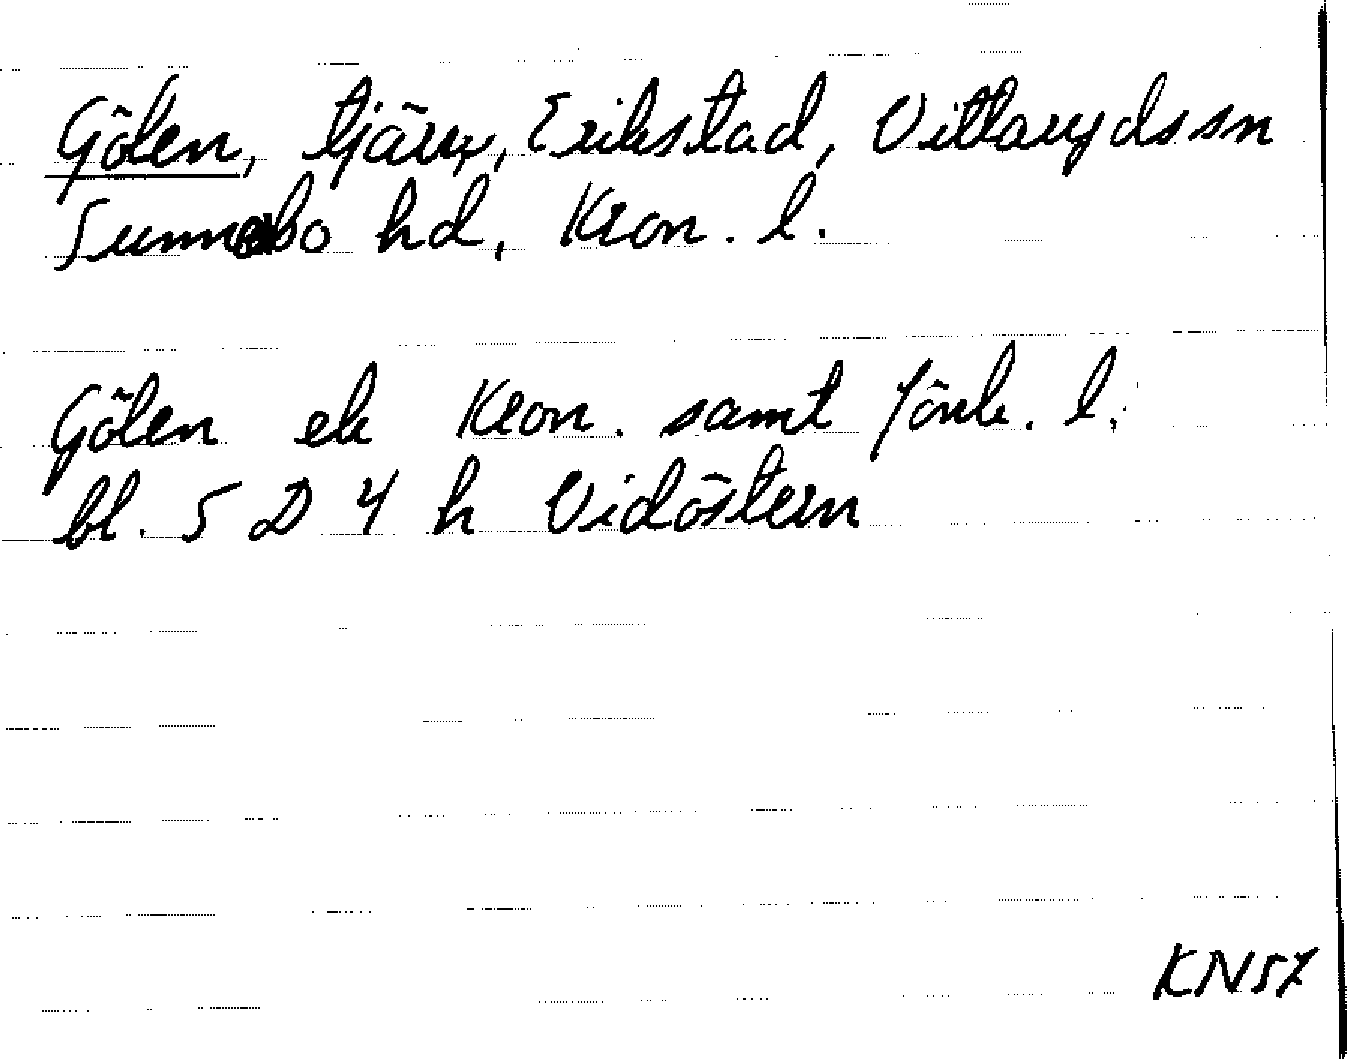 Gölen, tjärn, Erikstad, Vittarydssn
Sunnebo hd, Kron. l.
Gölen ek Kron. samt Jönk. l.
bl. 5 D 4 h Vidöstern
KN57